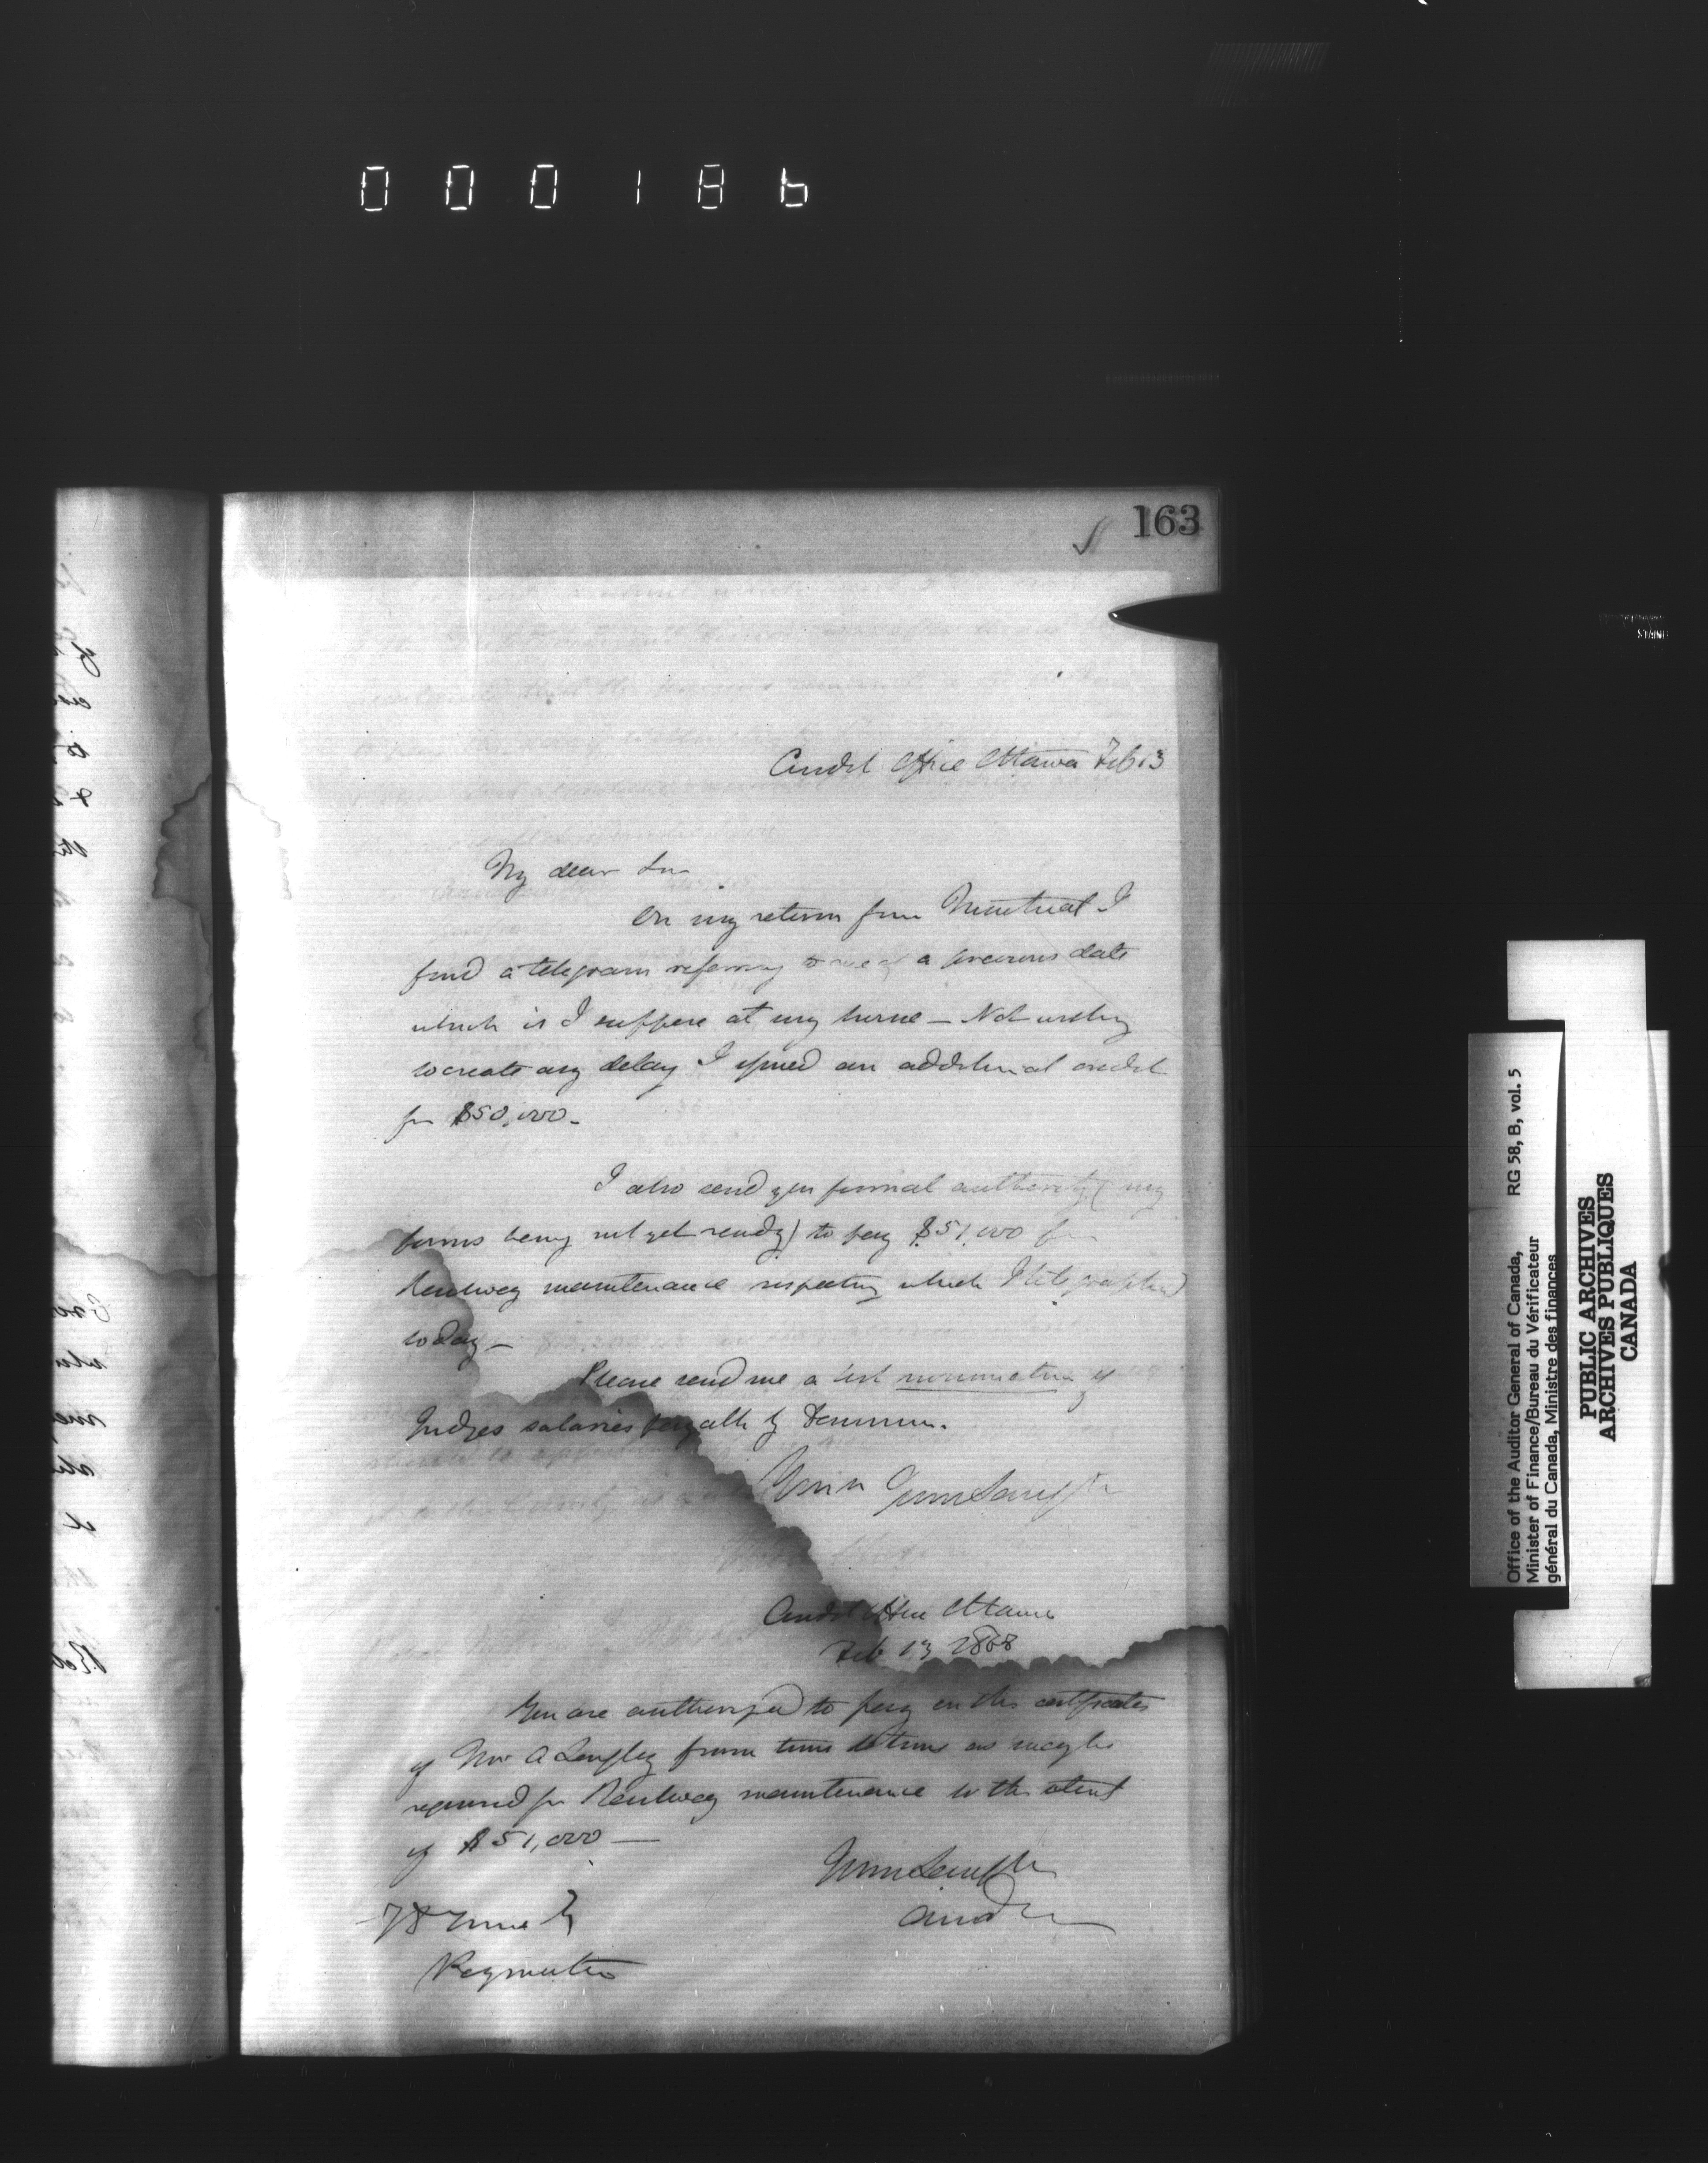 000186
163
Audit Office Ottawa Feb 13
My dear Sir
On my return from Montreal I
find a telegram referring to one of a previous date
which is I suppose at my house — Not wishing
to create any delay I opened an additional credit
for $50,000.
I also send you formal authority (my
forms being not yet ready) to pay $51,000 for
Railway maintenance respecting which I telegraphed
today —
Please send me a list nominatim of
Judges salaries payable by Dominion.
Yours
Audit Office Ottawa
Feb 13 1868
You are authorized to pay on the certificates
of Mr A Longley from time to time as may be
required for Railway maintenance to the extent
of $51,000 —
John Langton
Auditor
Paymaster
Office of the Auditor General of Canada, RG 58, B, vol. 5
Minister of Finance/Bureau du Vérificateur
général du Canada, Ministre des finances
PUBLIC ARCHIVES
ARCHIVES PUBLIQUES
CANADA